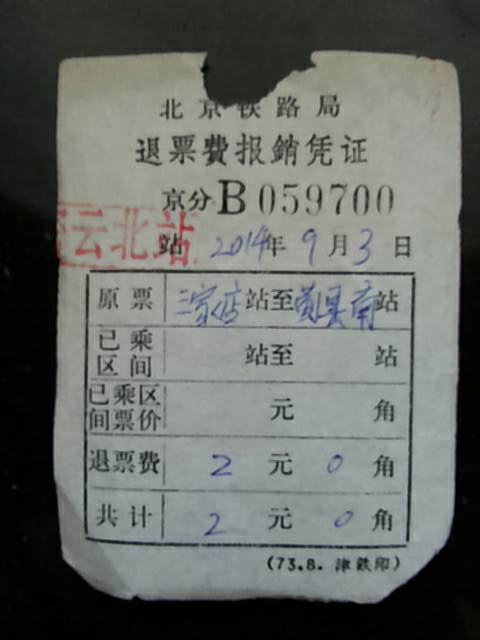 北京铁路局
退票费报銷凭证
京分B059700
云北站
站 2014年9月3日
原票 三家店站至 南站
已乘区间 站至 站
已乘区间票价 元 角
退票费 2元0角
共计 2元0角
(73.8. 津鉄印)